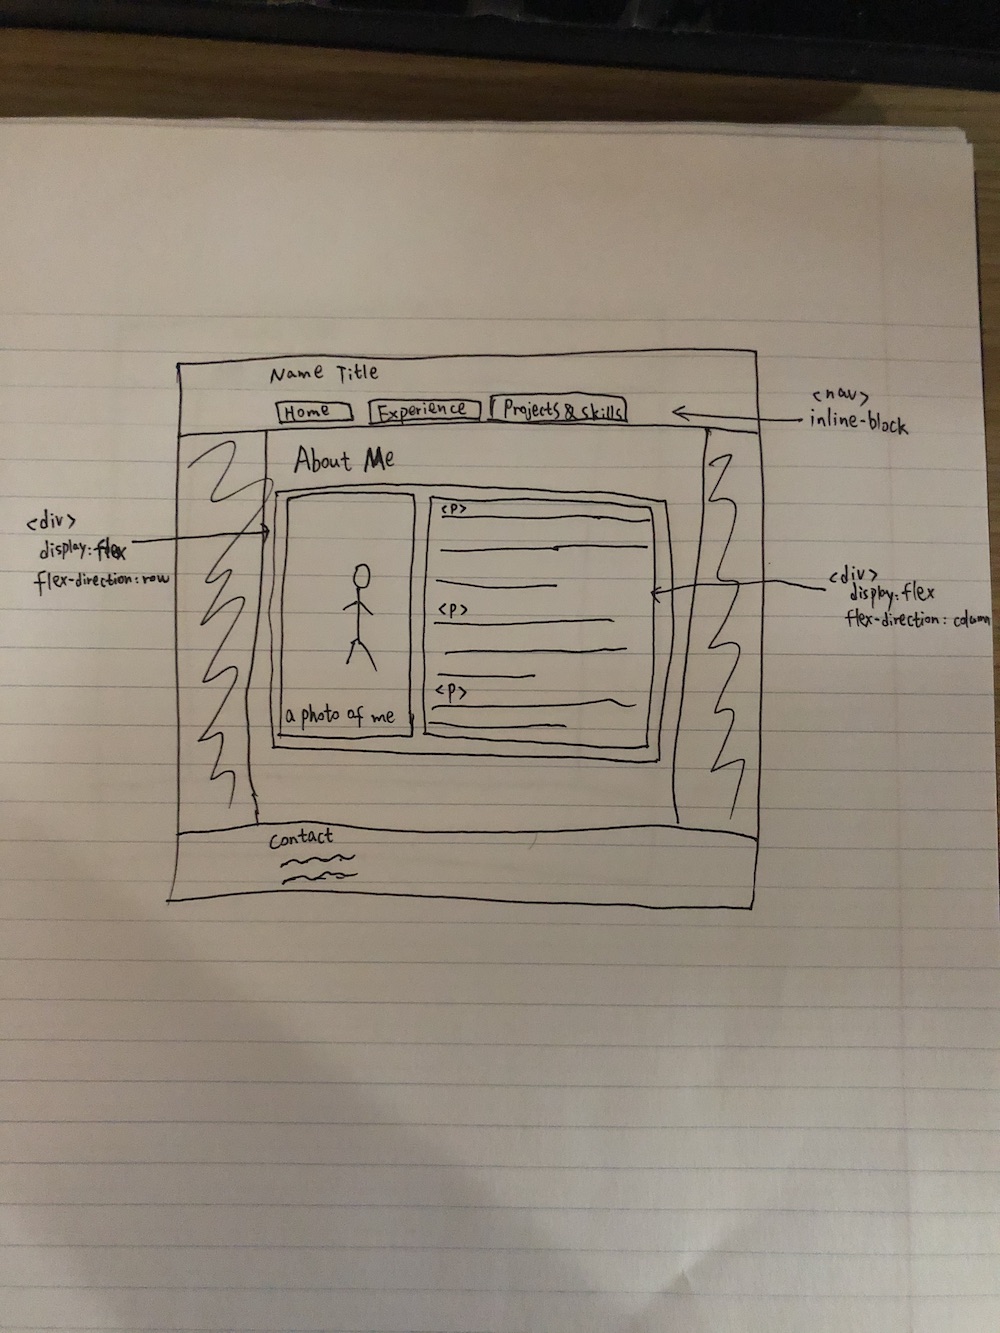 Name Title
Home
Experience
Projects & Skills
<nav>
inline-block
About Me
<div>
display: flex
flex-direction: row
<p>
<p>
<p>
a photo of me
<div>
display: flex
flex-direction: column
Contact